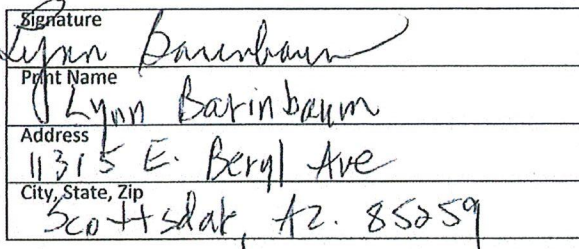 Signature
Lynn Barinbaum
Print Name
Lynn Barinbaum
Address
11315 E. Beryl Ave
City, State, Zip
Scottsdale, AZ. 85259